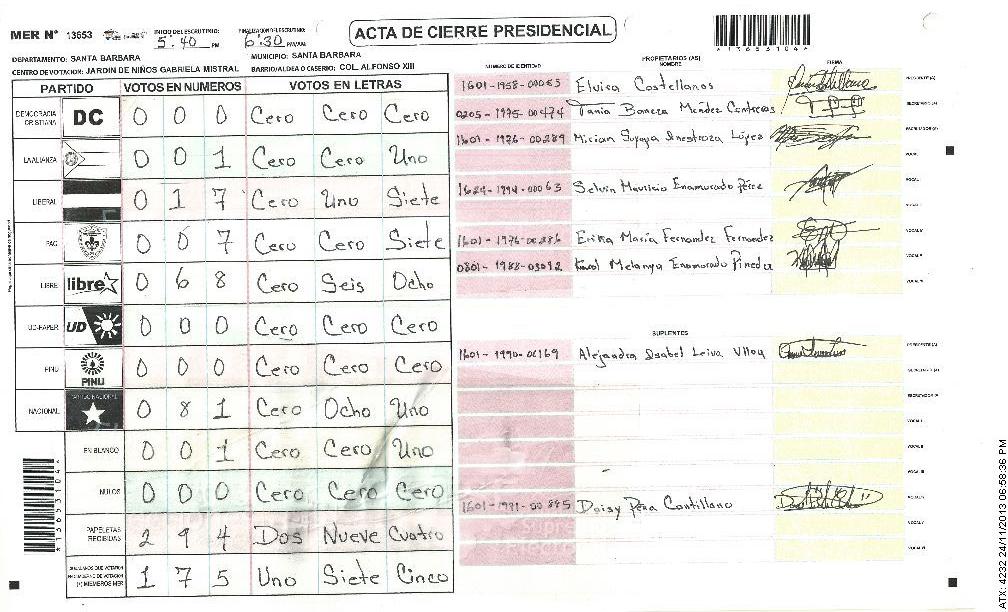 MER Nº 13653
INICIO DEL ESCRUTINIO: 5:40 PM
FINALIZACION DEL ESCRUTINIO: 6:30 PM/AM
ACTA DE CIERRE PRESIDENCIAL
*136531044*
DEPARTAMENTO: SANTA BARBARA
MUNICIPIO: SANTA BARBARA
CENTRO DE VOTACION: JARDIN DE NIÑOS GABRIELA MISTRAL
BARRIO/ALDEA O CASERIO: COL. ALFONSO XIII
PARTIDO VOTOS EN NUMEROS VOTOS EN LETRAS
DEMOCRACIA CRISTIANA DC 0 0 0 Cero Cero Cero
LA ALIANZA 0 0 1 Cero Cero Uno
LIBERAL 0 1 7 Cero Uno Siete
PAC 0 0 7 Cero Cero Siete
LIBRE libre 0 6 8 Cero Seis Ocho
UD-FAPER UD 0 0 0 Cero Cero Cero
PINU PINU 0 0 0 Cero Cero Cero
NACIONAL PARTIDO NACIONAL 0 8 1 Cero Ocho Uno
EN BLANCO 0 0 1 Cero Cero Uno
NULOS 0 0 0 Cero Cero Cero
PAPELETAS RECIBIDAS 2 9 4 Dos Nueve Cuatro
(+) MIEMBROS MER 1 7 5 Uno Siete Cinco
*136531044*
NÚMERO DE IDENTIDAD PROPIETARIOS (AS) NOMBRE FIRMA
1601-1958-00065 Elvira Castellanos PRESIDENTE (A)
0205-1975-00474 Tania Mendez Contreras SECRETARIO (A)
1601-1976-00289 Mirian Suyapa Inestroza López ESCRUTADOR (A)
VOCAL I
1624-1994-00063 Selvin Mauricio Enamorado Pérez VOCAL
VOCAL
1601-1976-00286 Erika María Fernandez Fernandez VOCAL
0801-1988-03092 Karol Melanya Enamorado Pineda VOCAL
VOCAL VI
SUPLENTES
1601-1990-00169 Alejandra Isabel Leiva Ulloa PRESIDENTE (A)
SECRETARIO (A)
ESCRUTADOR (A)
VOCAL I
VOCAL II
VOCAL III
1601-1991-00845 Daisy Peña Cantillano VOCAL IV
VOCAL V
VOCAL VI
ATX: 4232 24/11/2013 06:58:36 PM